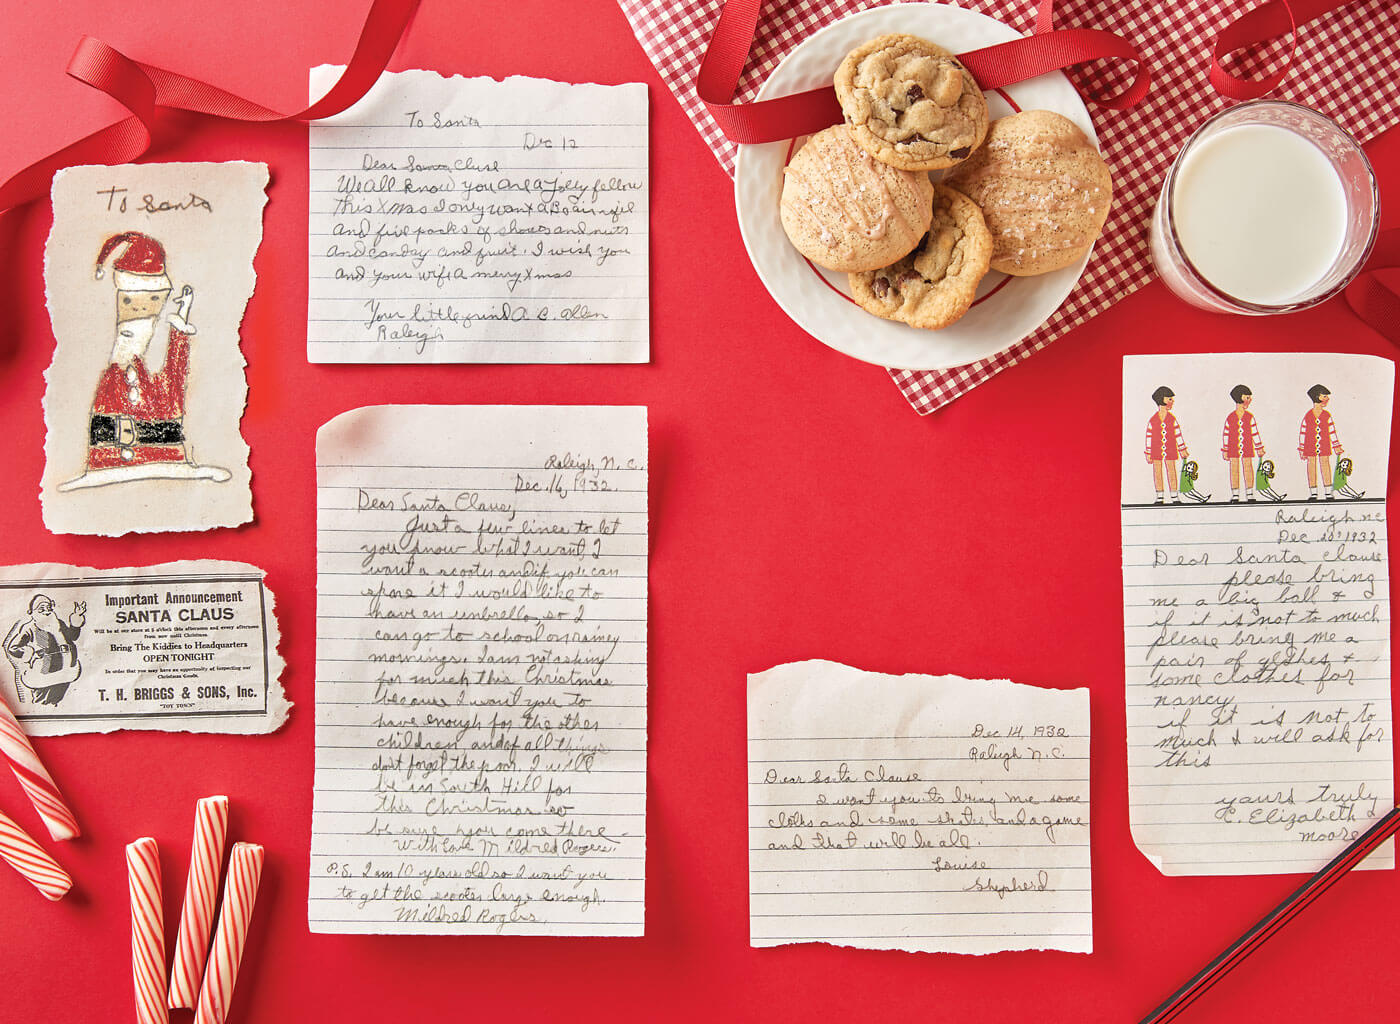 To Santa
To Santa
Dec 12
Dear Santa Cluse
We all know you are a jolly fellow
this Xmas I only want a
and five packs of shouts and nuts
and canday and fruit. I wish you
and your wife a merry Xmas
Your little frind A. C. Allen
Raleigh
Important Announcement
SANTA CLAUS
Will be at our store at 5 o'clock this afternoon and every afternoon
from now until Christmas.
Bring The Kiddies to Headquarters
OPEN TONIGHT
In order that you may have an opportunity of inspecting our
Christmas Goods.
T. H. BRIGGS & SONS, Inc.
"TOY TOWN"
Raleigh, N. C.
Dec. 16, 1932.
Dear Santa Clause,
Just a few lines to let
you know what I want, I
want a scooter and if you can
spare it I would like to
have an umbrella, so I
can go to school on rainey
mornings. I am not asking
for much this Christmas
because I want you to
have enough for the other
children, and of all things
don't forget the poor. I will
be in South Hill for
this Christmas so
be sure you come there -
With love Mildred Rogers.
P.S. I am 10 years old so I want you
to get the scooter large enough.
Mildred Rogers.
Dec 14, 1932
Raleigh N. C.
Dear Santa Clause
I want you to bring me some
cloths and some skates, and a game
and that will be all.
Louise
Shepherd
Raleigh nc
Dec 20, 1932
Dear Santa Clause
please bring
me a big ball &
if it is not to much
please bring me a
pair of gloshes &
some clothes for
nancy
if it is not to
much I will ask for
this
yours truly
C. Elizabeth
Moore